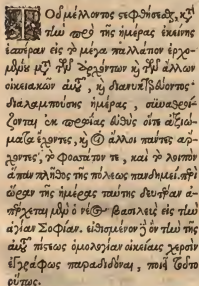 Τοῦ μέλλοντος στεφθήσεσθαι, κτ
τὴν πρὸ τῆς ἡμέρας ἐκείνης
ἑσπέραν εἰς τὸ μέγα παλάτιον ἐρχο-
μένου μετὰ τῶν ἀρχόντων κὴ τῶν ἄλλων
οἰκειακῶν αὐτοῦ, κὴ
διαλαμπούσης ἡμέρας, συναθροί-
ζονται ἐκ πρωΐας εὐθὺς οἵτε ἀξιώ-
ματα ἔχοντες, κὴ οἱ ἄλλοι παντες ἄρ-
χοντες, τὸ φοσάτον τε, καὶ τὸ λοιπὸν
ἅπαν πλῆθος τῆς πόλεως πανδημεί. περὶ
ὥραν τῆς ἡμέρας ταύτης δευτέραν ἀ-
πέρχεται μὲν ὁ νέος βασιλεὺς εἰς τὴν
ἁγίαν Σοφίαν. εἰθισμένον ὂν τὴν τῆς
αὐτοῦ πίστεως ὁμολογίαν οἰκείαις χερσὶν
ἐγγράφως παραδιδόναι, ποιεῖ τοῦτο
οὕτως.